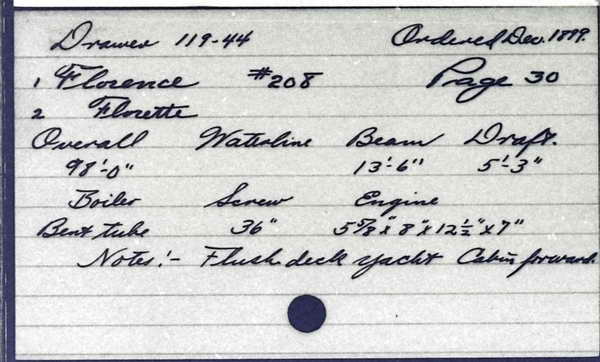 Drawer 119-44 Ordered Dec. 1889.
1 Florence #208 Page 30
2 Florette
Overall Waterline Beam Draft.
98'-0" 13'-6" 5'-3"
Boiler Screw Engine
Bent tube 36" 5 5/8" x 8" x 12 1/2" x 7"
Notes:- Flush deck yacht Cabin forward.